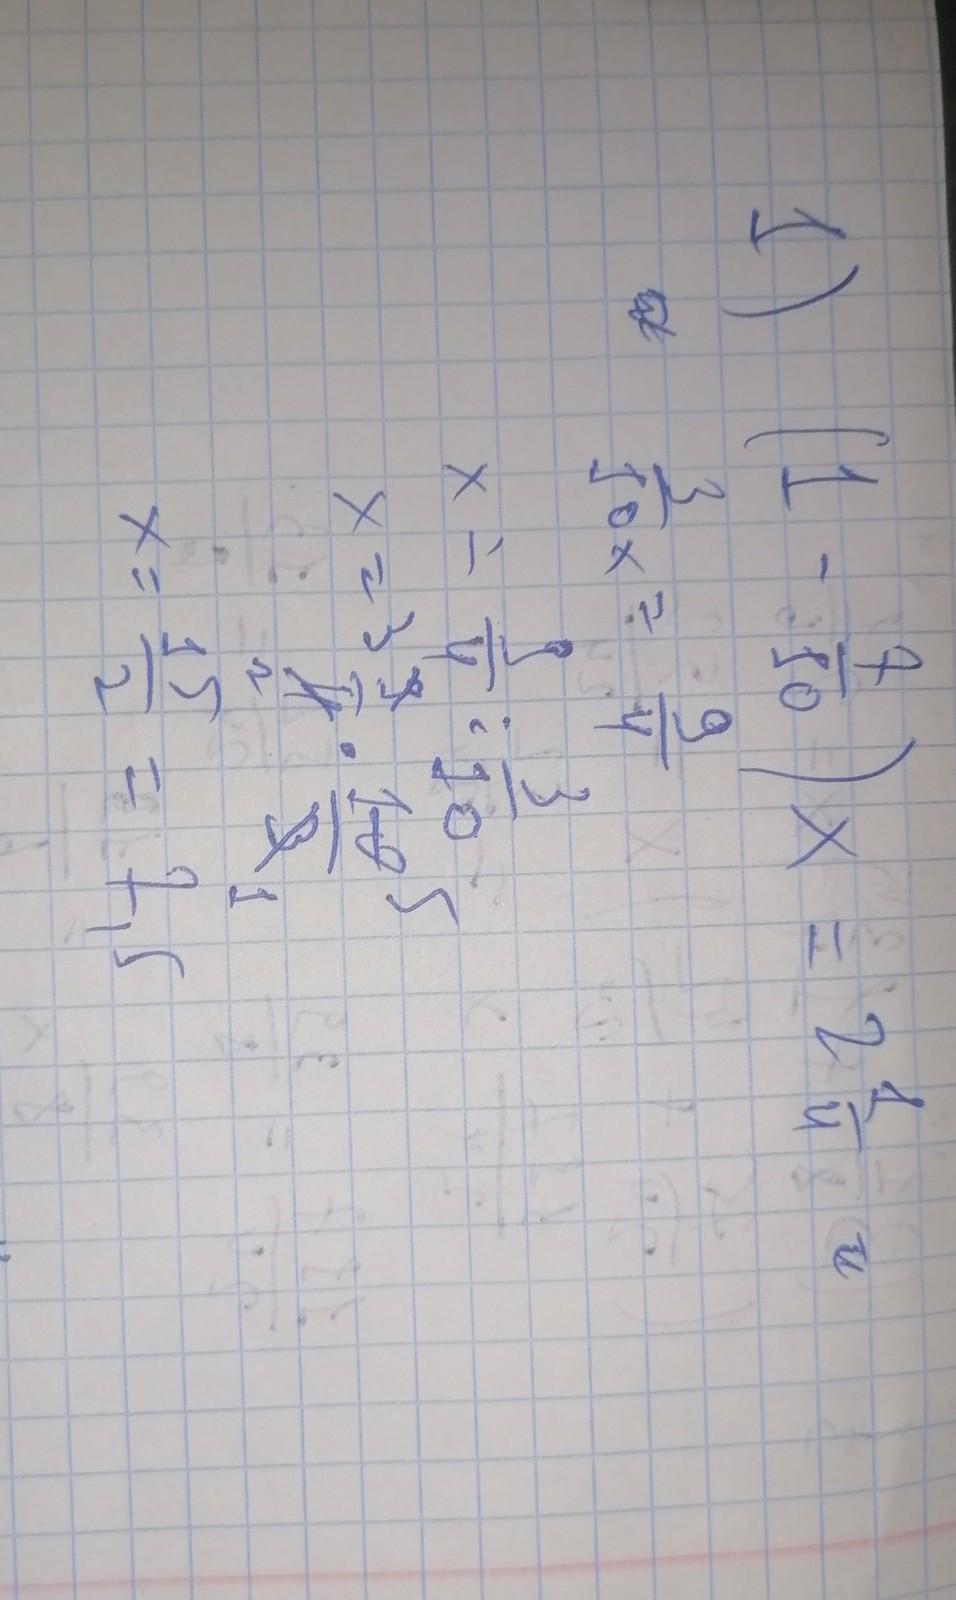 1) (1 - 7/10) x = 2 1/4
3/10 x = 9/4
x = 9/4 : 3/10
x = 3 9/4 2 · 10 5/3 1
x = 15/2 = 7,5